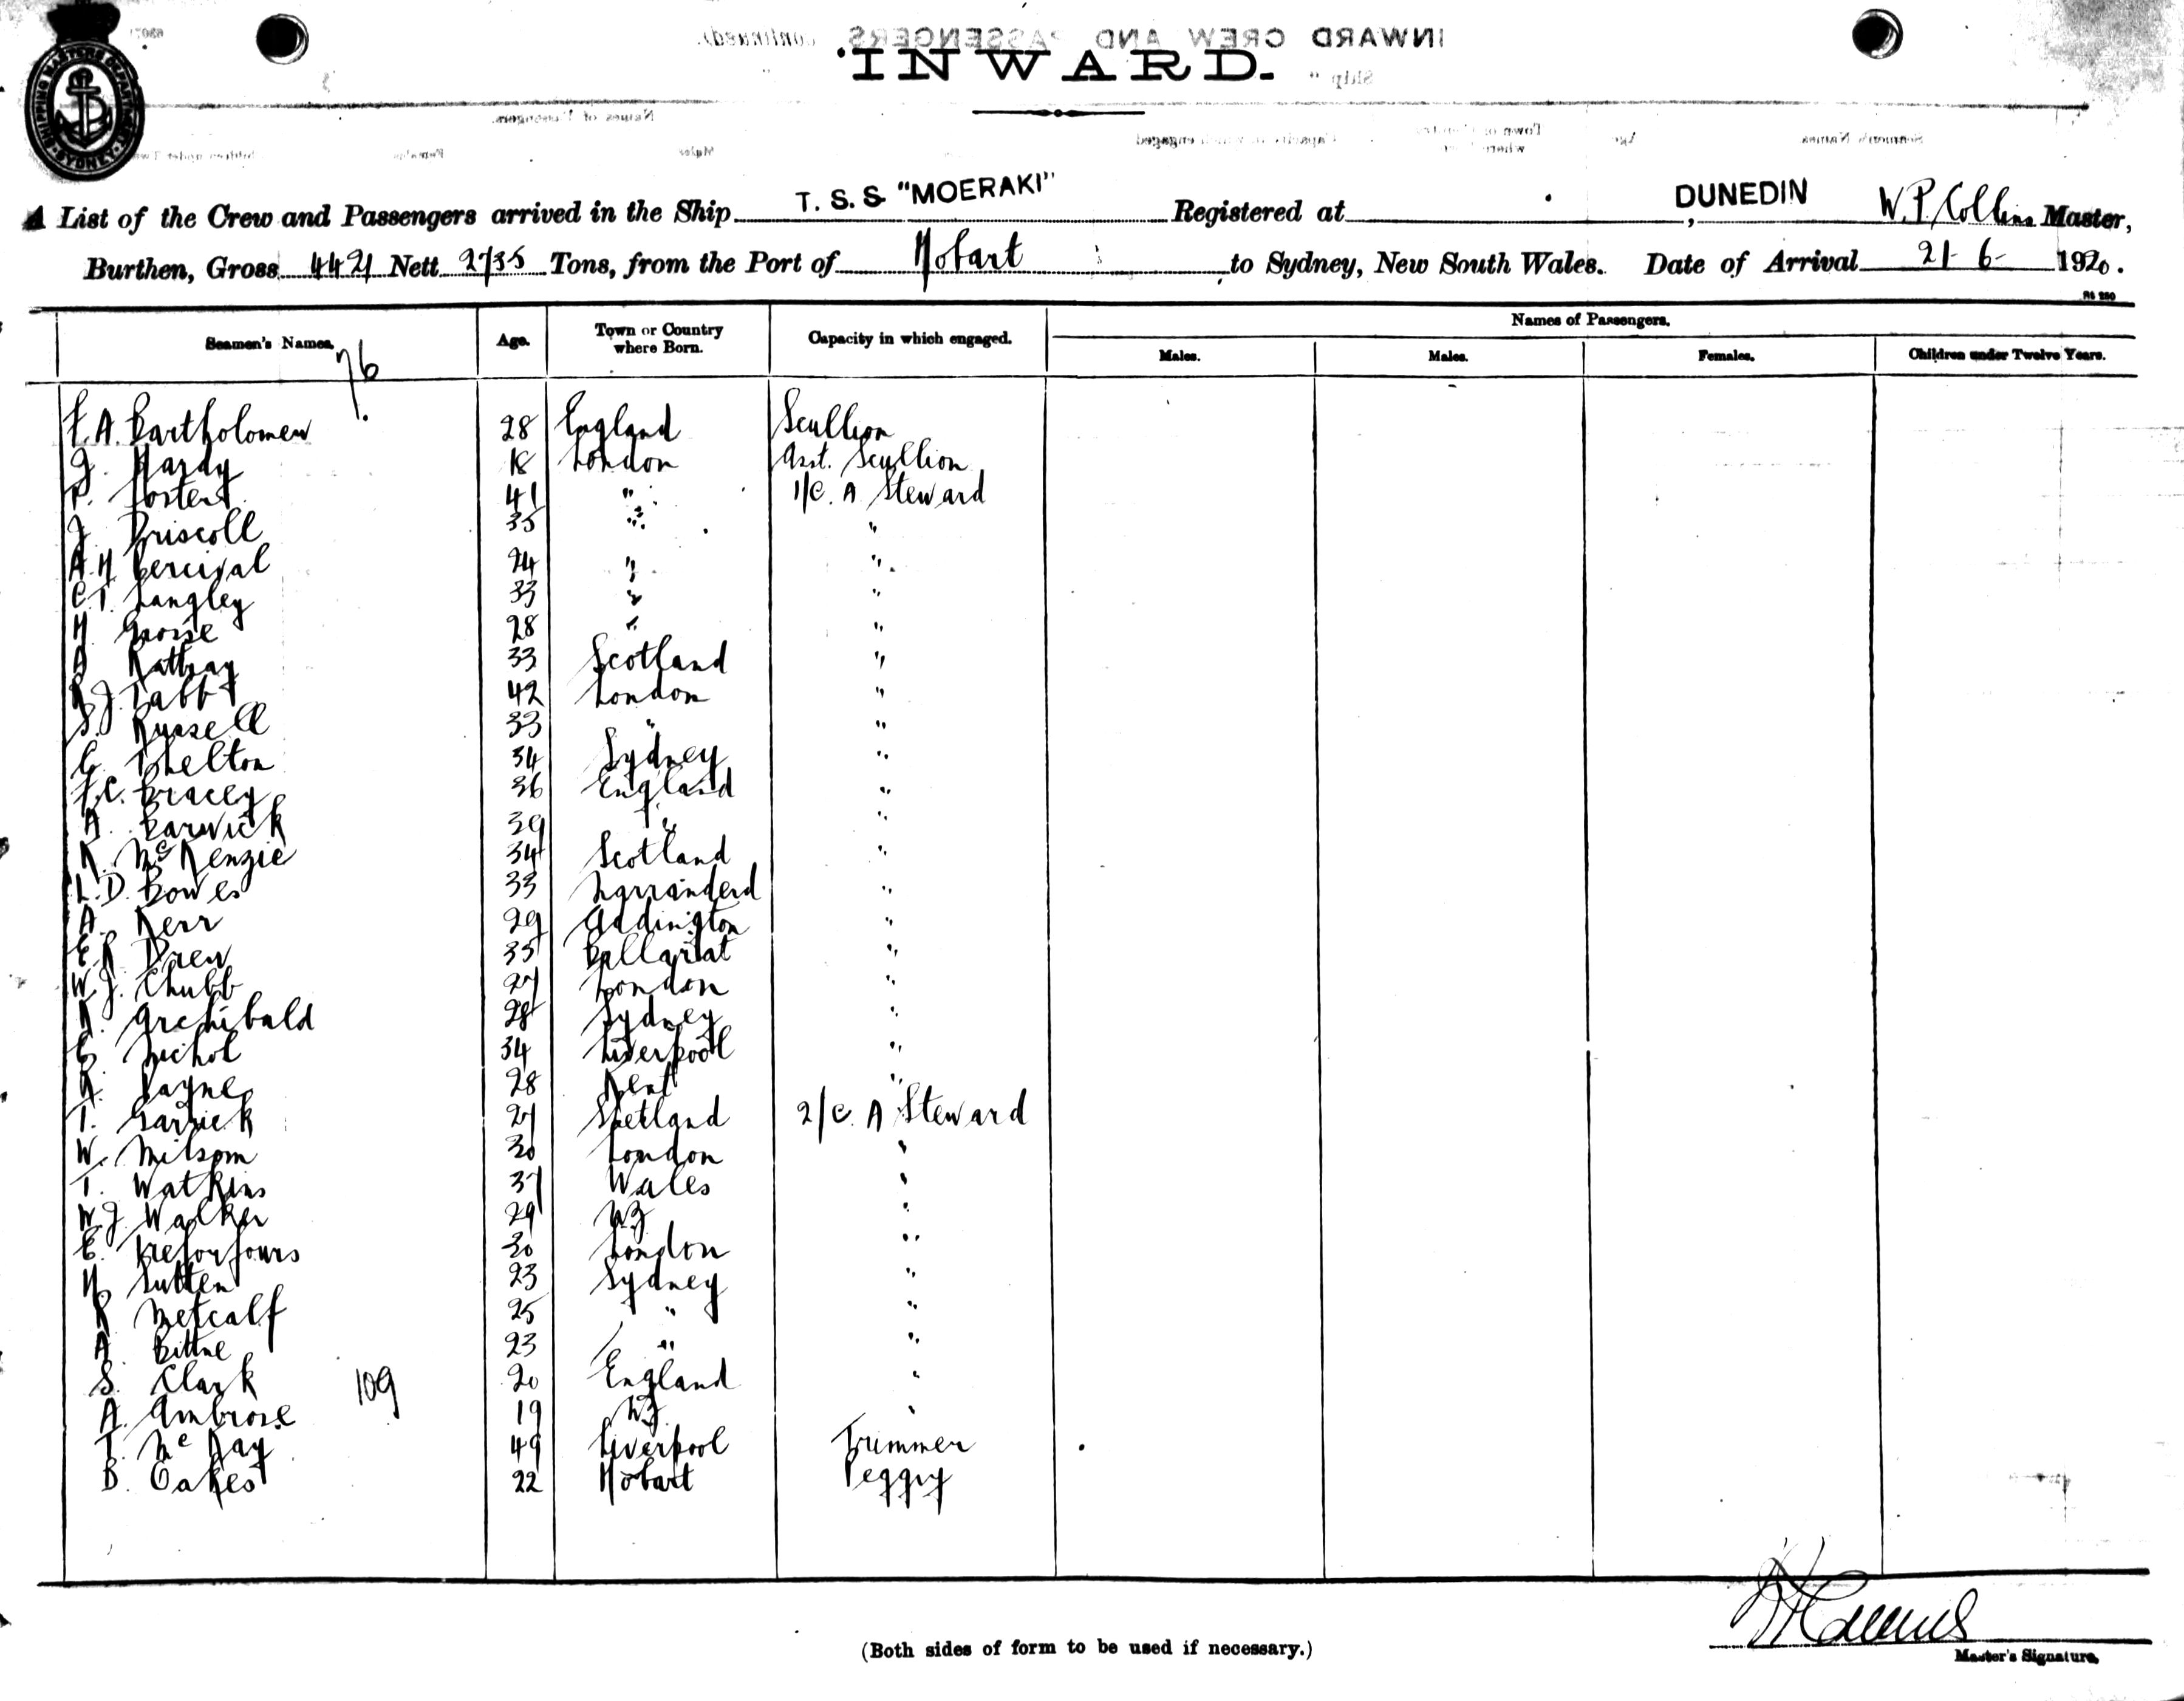 INWARD.
SHIPPING MASTERS DEPARTMENT SYDNEY
A List of the Crew and Passengers arrived in the Ship T. S. S "MOERAKI" Registered at DUNEDIN W. P. Collins Master,
Burthen, Gross 4421 Nett 2735 Tons, from the Port of Hobart to Sydney, New South Wales. Date of Arrival 21-6- 1920.
Seamen's Names. Age. Town or Country where Born. Capacity in which engaged. Names of Passengers.
76 Males. Males. Females. Children under Twelve Years.
F. A. Bartholomew 28 England Scullion
J. Hardy 18 London Asst. Scullion
Foster 41 " 1/C. A Steward
J. Driscoll 35 " "
A H Percival 24 " "
C. T. Langley 33 " "
H. Grosse 28 " "
Rattray 33 Scotland "
J. Tabb 42 London "
S. Russell 33 " "
C. Thelton 34 Sydney "
F. C. Bracey 36 England "
A. Barwick 39 " "
K. McKenzie 34 Scotland "
L. D. Bowes 33 Narranderd "
A. Kerr 29 Addington "
E R Drew 35 Ballarat "
W. J. Chubb 27 London "
R. Archibald 28 Sydney "
Nichol 34 Liverpool "
Payne 28 Kent "
T. Garrick 27 Shetland 2/C. A Steward
W. Milsom 30 London "
T. Watkins 37 Wales "
W. J. Walker 29 NZ "
E. 30 London "
H. Sutten 23 Sydney "
R Metcalf 25 " "
A 23 " "
S. Clark 109 20 England "
A. Ambrose 19 NZ "
T. McKay 49 Liverpool Trimmer
B. Oakes 22 Hobart Peggy
(Both sides of form to be used if necessary.)
Master's Signature.